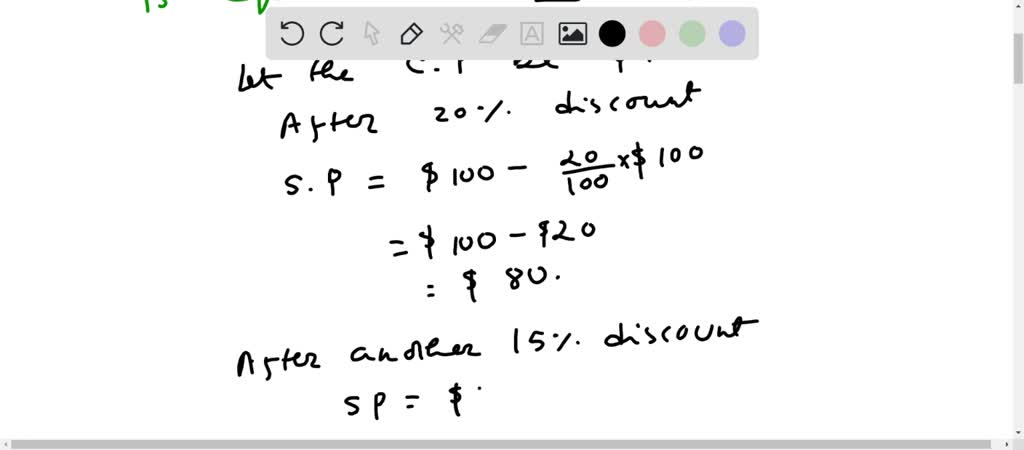 Let the C.P be
After 20% discount
S.P = $100 - 20/100 × $100
= $100 - $20
= $80.
After another 15% discount
SP = $